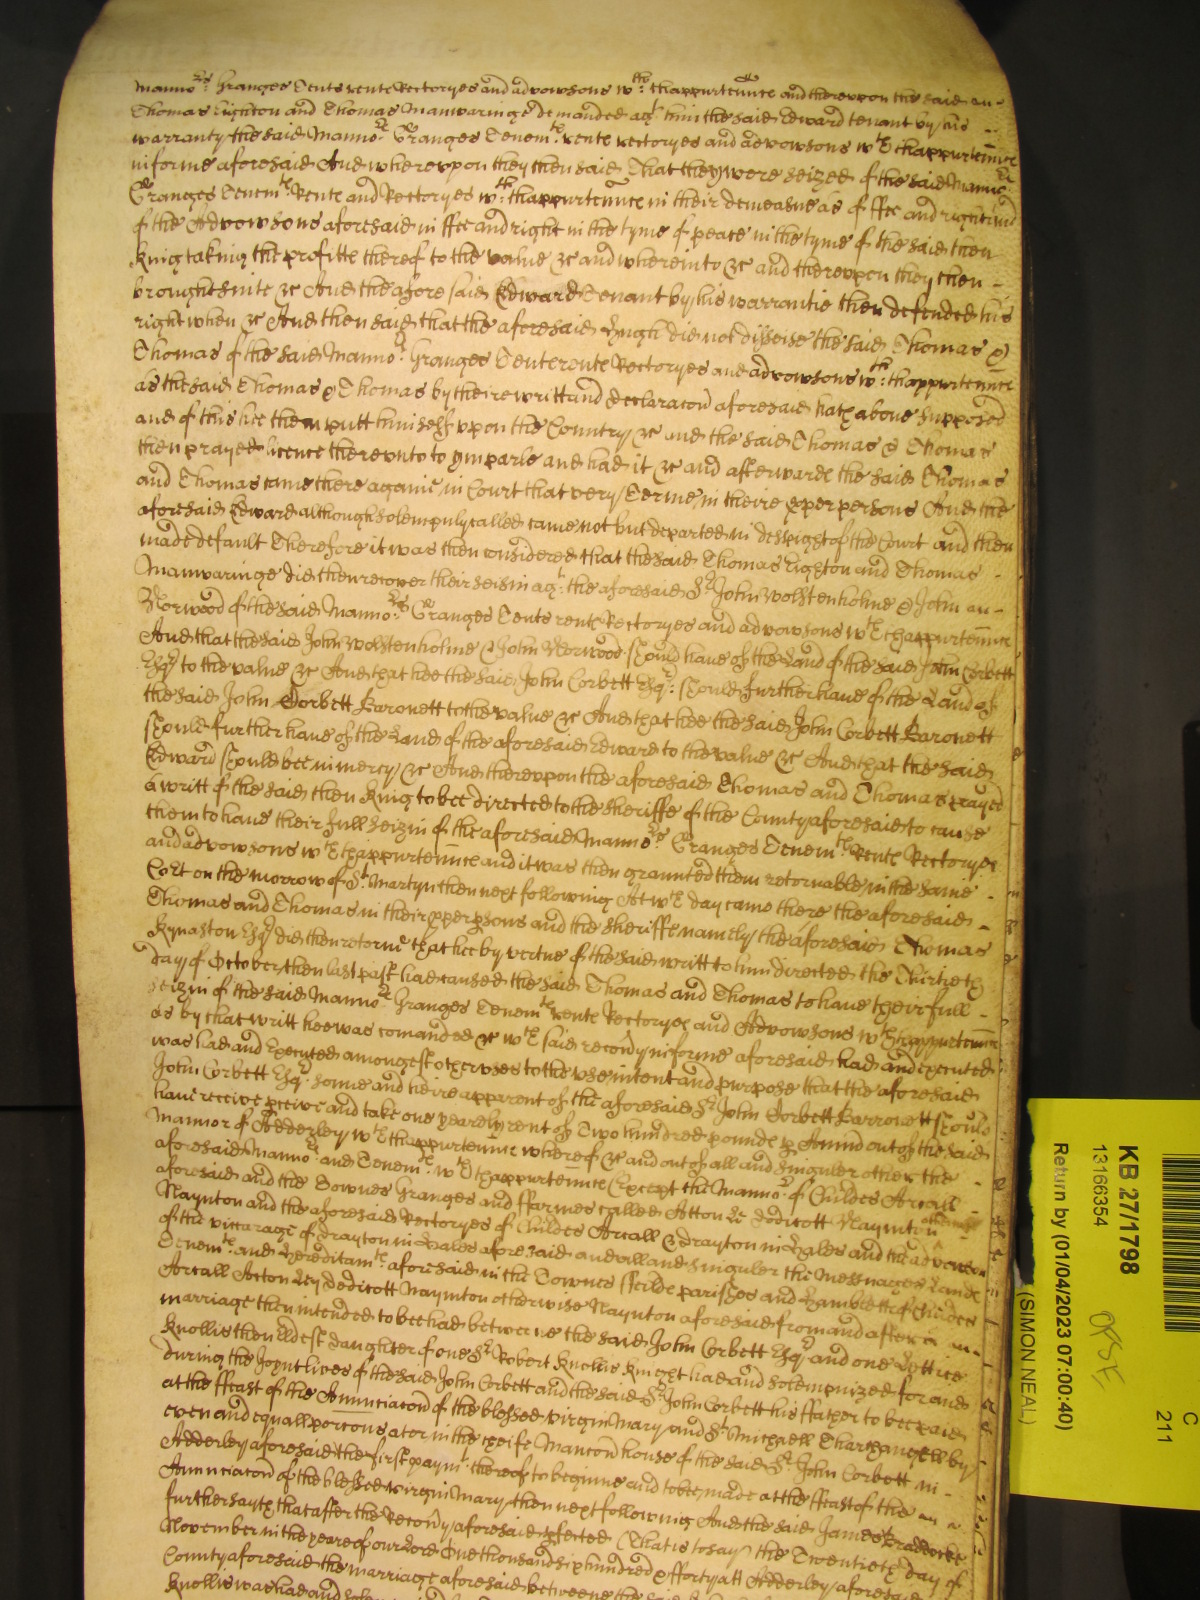 Manno.rs Granges Tents rente Rectoryes and advowsons w.th thappurtennce and therevpon the said
Thomas Lighton and Thomas Manwaringe demanded ag.t him the said Edward tenant by his
warranty the said Manno.rs Granges Tenem.te rente rectoryes and advowsons w.th thappurtennce
in forme aforesaid And wherevpon they then said That they were seized of the said Manno.rs
Granges Tenem.te Rente and Rectoryes w.th thappurtennce in their demeasne as of ffee and right and
of the Advowsons aforesaid in ffee and right in the tyme of peace in the tyme of the said then
King taking the profitte thereof to the value &c and whereinto &c and therevpon they then
brought suite &c And the aforesaid Edward Tenant by his warrantie then defended his
right when &c And then said that the aforesaid Hugh did not disseise the said Thomas &
Thomas of the said Manno.rs Granges Tente rente Rectoryes and advowsons w.th thappurtennce
as the said Thomas & Thomas by their writt and declaracon aforesaid hath above supposed
and of this hee then putt himself vpon the Country &c And the said Thomas & Thomas
then prayed licence therevnto to ymparle and had it &c and afterwarde the said Thomas
and Thomas came there againe in Court that very Terme in theire proper persons And the
aforesaid Edward although solempnly called came not but departed in despight of the Court and then
made default Therefore it was then considered that the said Thomas Lighton and Thomas
Manwaringe did then recover their seisin ag.t the aforesaid S.r John Wolstenholme & John
Norwood of the said Manno.rs Granges Tents rente Rectoryes and advowsons w.th thappurtennce
And that the said John Wolstenholme & John Norwood should have of the Land of the said John Corbett
Esq.r to the value &c And that hee the said John Corbett Esq.r should further have of the Land of
the said John Corbett Baronett to the value &c And that hee the said John Corbett Baronett
should further have of the Land of the aforesaid Edward to the value &c And that the said
Edward should bee in mercy &c And therevpon the aforesaid Thomas and Thomas prayed
a writt of the said then King to bee directed to the sheriffe of the County aforesaid to cause
them to have their full seizin of the aforesaid Manno.rs Granges Tenem.te Rente Rectoryes
and advowsons w.th thappurtennce and it was then graunted them retornable in the same
Co.rt on the morrow of S.t Martyn then next following At w.ch day came there the aforesaid
Thomas and Thomas in their pper psons and the sheriffe namely the aforesaid Thomas
Kynaston Esq.r did then retorne that hee by vertue of the said writt to him directed the Thirtieth
day of October then last past had caused the said Thomas and Thomas to have their full
seizin of the said Manno.rs Granges Tenem.te rente Rectoryes and Advowsons w.th thappurtennce
as by that writt hee was comanded &c w.ch said recovy in forme aforesaid had and executed
was had and Executed amongest other vses to the vse intent and purpose that the aforesaid
John Corbett Esq.r sonne and heire apparent of the aforesaid S.r John Corbett Barronett should
have receive pceive and take one yearely rent of Two hundred pounde p Annu out of the said
Mannor of Adderley w.th thappurtennce whereof &c and out of all and singuler other the
aforesaid Manno.rs and Tenem.te w.th thappurtennce (Except the Manno.r of Childes Arcall
aforesaid and the Townes Granges and ffarmes called Atton Dodicott Naynton
Naynton and the aforesaid Rectoryes of Childes Arcall & drayton in Hales and the advowson
of the viccarage of drayton in Hales aforesaid and all and singuler the Messuages Lande
Tenem.te and Hereditam.te aforesaid in the Townes ffeilde parishes and Hamblette of Childes
Arcall Atton Ley dodicott Naynton otherwise Naynton aforesaid from and after a
marriage then intended to bee had betweene the said John Corbett Esq.r and one Lettice
Knollis then eldest daughter of one S.r Robert Knollis Knight had and solempnized for and
during the Joynt lives of the said John Corbett and the said S.r John Corbett his ffather to bee paid
at the ffeast of the Annunciacon of the blessed virgin Mary and S.t Michaell Tharchangell by
even and equall porcons at or in the cheife Mancon house of the said S.r John Corbett in
Adderley aforesaid the first paym.t thereof to beginne and to bee made at the ffeast of the
Anunciacon of the blessed virgin Mary then next following And the said James Braddocke
further sayth that after the Recovy aforesaid pfected (That is to say) the Twentieth day of
November in the yeare of our Lord One thousand six hundred & fforty att Adderley aforesaid
County aforesaid the marriage aforesaid betweene the said
Knollis was had and
KB 27/1798
13166354
Return by (01/04/2023 07:00:40)
(SIMON NEAL)
C
211